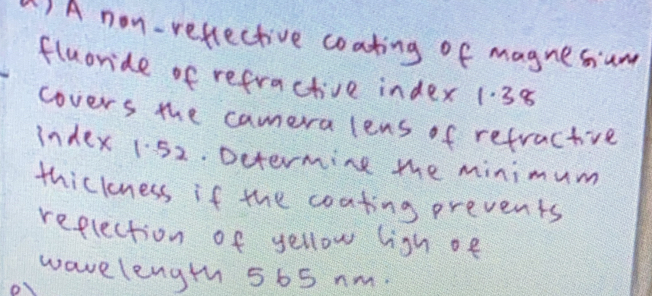 a) A non-reflective coating of magnesium
fluoride of refractive index 1.38
covers the camera lens of refractive
index 1.52. Determine the minimum
thickness if the coating prevents
reflection of yellow ligh of
wavelength 565 nm.